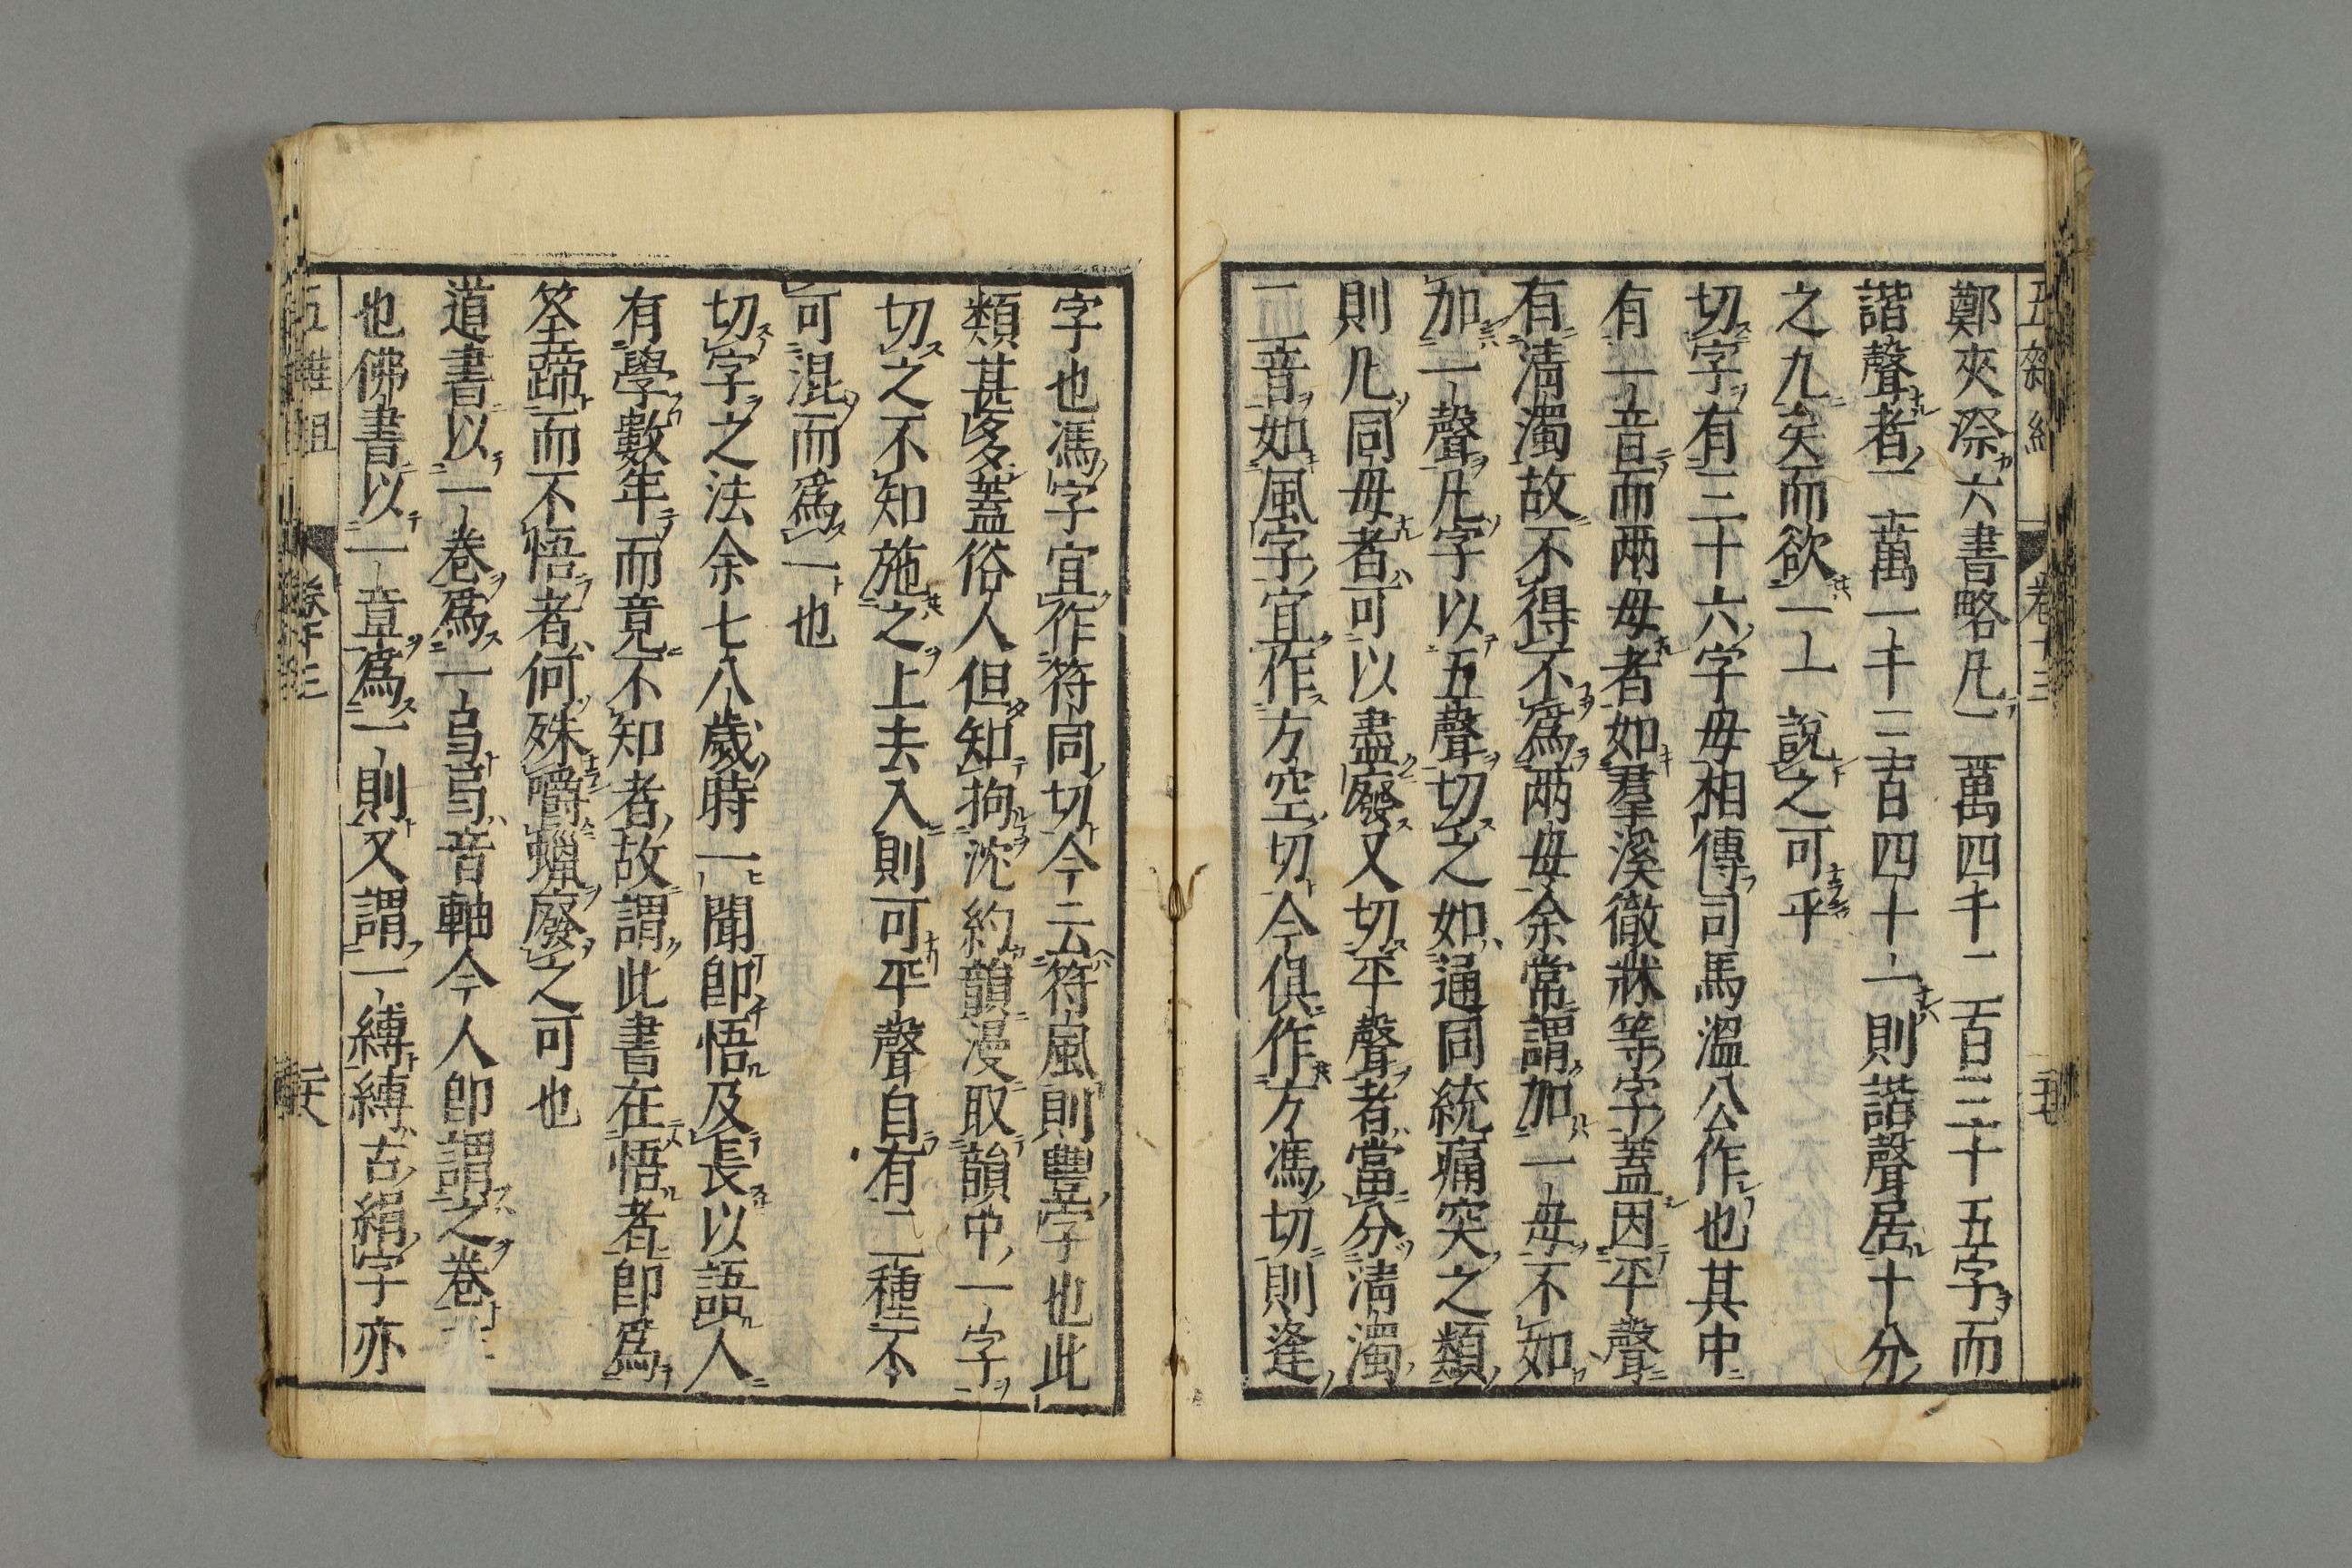 鄭夾漈六書略凡二萬四千二百三十五字而
諧聲者二萬一千三百四十一則諧聲居十分
之九矣而欲一一說之可乎
切字有三十六字母相傳司馬溫公作也其中
有一音而兩母者如羣溪徹牀等字蓋因平聲
有清濁故不得不爲兩母余常謂加一母不如
加一聲凡字以五聲切之如通同統痛突之類
則凡同母者可以盡廢又切平聲者當分清濁
二音如風字宜作方空切今俱作方馮切則逢
字也馮字宜作符同切今云符風則豐字也此
類甚多蓋俗人但知拘沈約韻漫取韻中一字
切之不知施之上去入則可平聲自有二種不
可混而爲一也
切字之法余七八歲時一聞卽悟及長以語人
有學數年而竟不知者故謂此書在悟者卽爲
筌蹄而不悟者何殊嚼蠟廢之可也
道書以一卷爲一弓弓音軸今人卽謂之卷
也佛書以一章爲一則又謂一縛縛古絹字亦
五雜組
卷十三
二十六